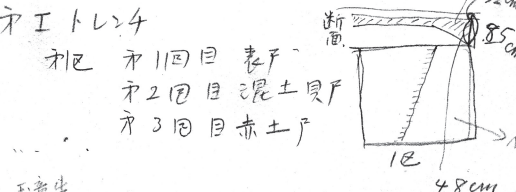 才Iトレンチ
才1区 才1回目 表尸
才2回目 混土貝尸
才3回目 赤土尸
断面
85cm
1区
48cm